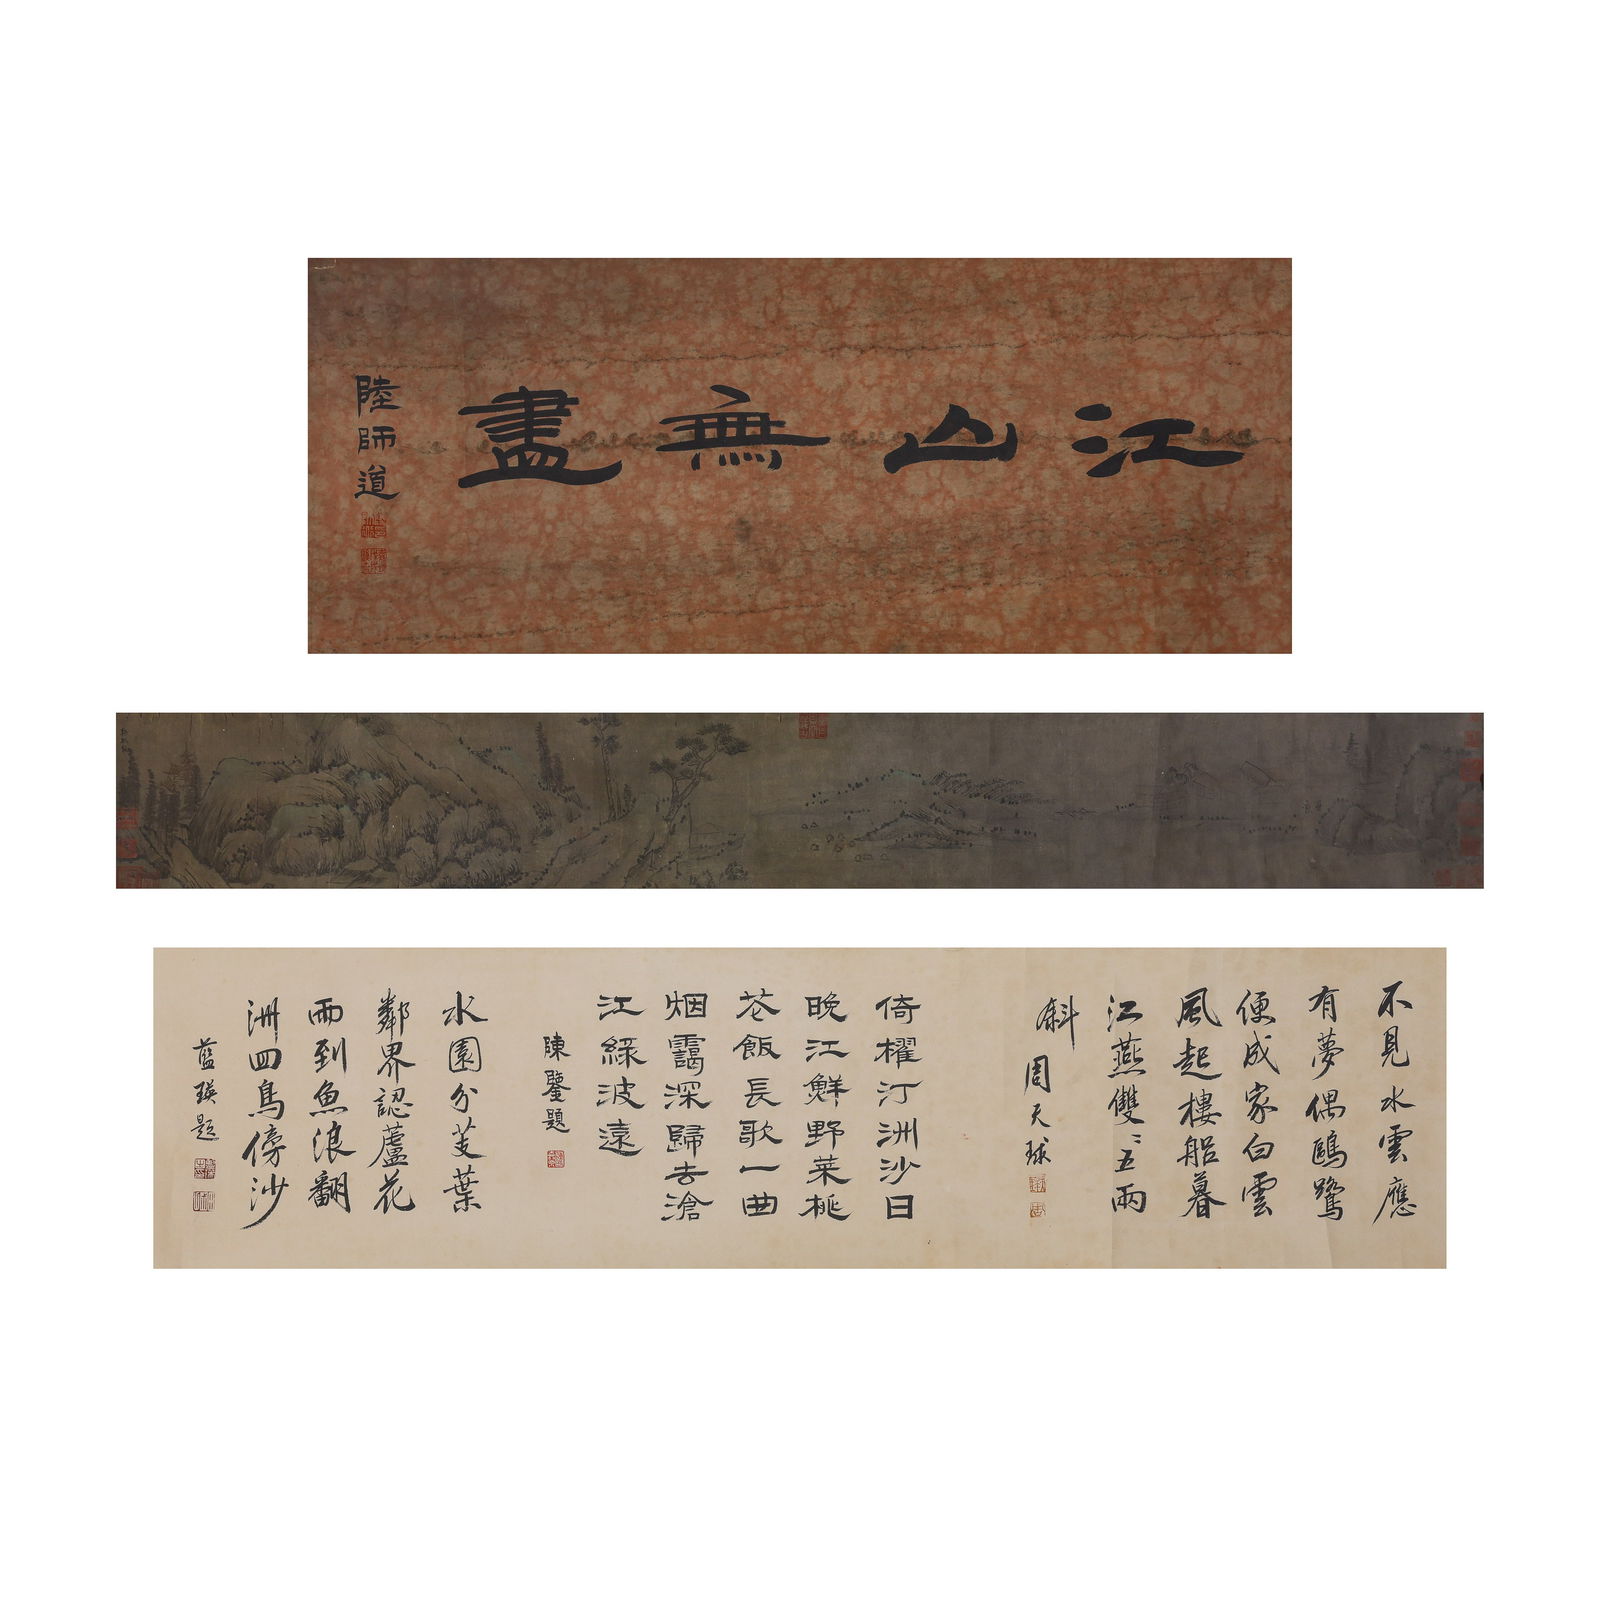 江山無盡
陸師道
不見水雲應
有夢偶鷗鷺
便成家白雲
風起樓船暮
江燕雙〻五兩
斜
周天球
倚櫂汀洲沙日
晚江鮮野菜桃
花飯長歌一曲
烟靄深歸去滄
江綠波遠
陳鑒題
水園分芰葉
鄰界認蘆花
雨到魚浪翻
洲四鳥傍沙
藍瑛題